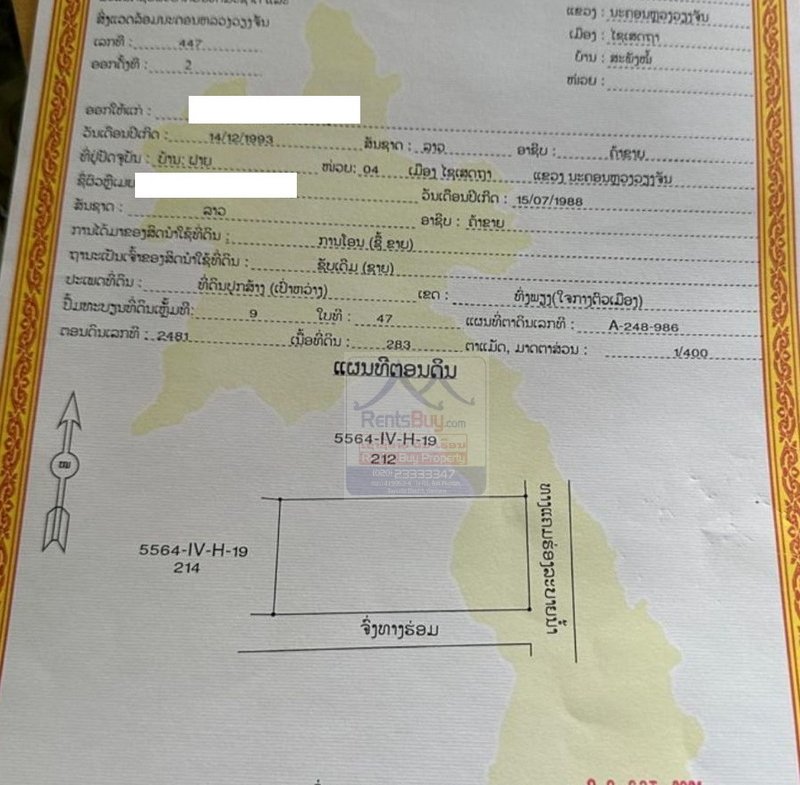 ສິ່ງແວດລ້ອມນະຄອນຫລວງວຽງຈັນ
ແຂວງ : ນະຄອນຫຼວງວຽງຈັນ
ເລກທີ : 447
ເມືອງ : ໄຊເສດຖາ
ອອກຄັ້ງທີ : 2
ບ້ານ : ສະພັງໝໍ້
ໜ່ວຍ :
ອອກໃຫ້ແກ່ :
ວັນເດືອນປີເກີດ : 14/12/1993 ສັນຊາດ : ລາວ ອາຊີບ : ຄ້າຂາຍ
ທີ່ຢູ່ປັດຈຸບັນ : ບ້ານ: ຝາຍ ໜ່ວຍ: 04 ເມືອງ ໄຊເສດຖາ ແຂວງ ນະຄອນຫຼວງວຽງຈັນ
ຊື່ຜົວຫຼືເມຍ ວັນເດືອນປີເກີດ : 15/07/1988
ສັນຊາດ : ລາວ ອາຊີບ : ຄ້າຂາຍ
ການໄດ້ມາຂອງສິດນຳໃຊ້ທີ່ດິນ : ການໂອນ (ຊື້ ຂາຍ)
ຖານະເປັນເຈົ້າຂອງສິດນຳໃຊ້ທີ່ດິນ : ຊັບເດີມ (ຊາຍ)
ປະເພດທີ່ດິນ : ທີ່ດິນປຸກສ້າງ (ເປົ່າຫວ່າງ) ເຂດ : ທົ່ງພຽງ(ໃຈກາງຕົວເມືອງ)
ປຶ້ມທະບຽນທີ່ດິນເຫຼັ້ມທີ: 9 ໃບທີ : 47 ແຜນທີ່ຕາດິນເລກທີ : A-248-986
ຕອນດິນເລກທີ : 2481 ເນື້ອທີ່ດິນ : 283 ຕາແມັດ, ມາດຕາສ່ວນ : 1/400
ແຜນທີ່ຕອນດິນ
RentsBuy.com
5564-IV-H-19
RentsBuy Property
212
(020) 23333347
ໜ
5564-IV-H-19
214
ທາງແຄມຮ່ອງລະບາຍນ້ຳ
ຈົ່ງທາງຮ່ອມ